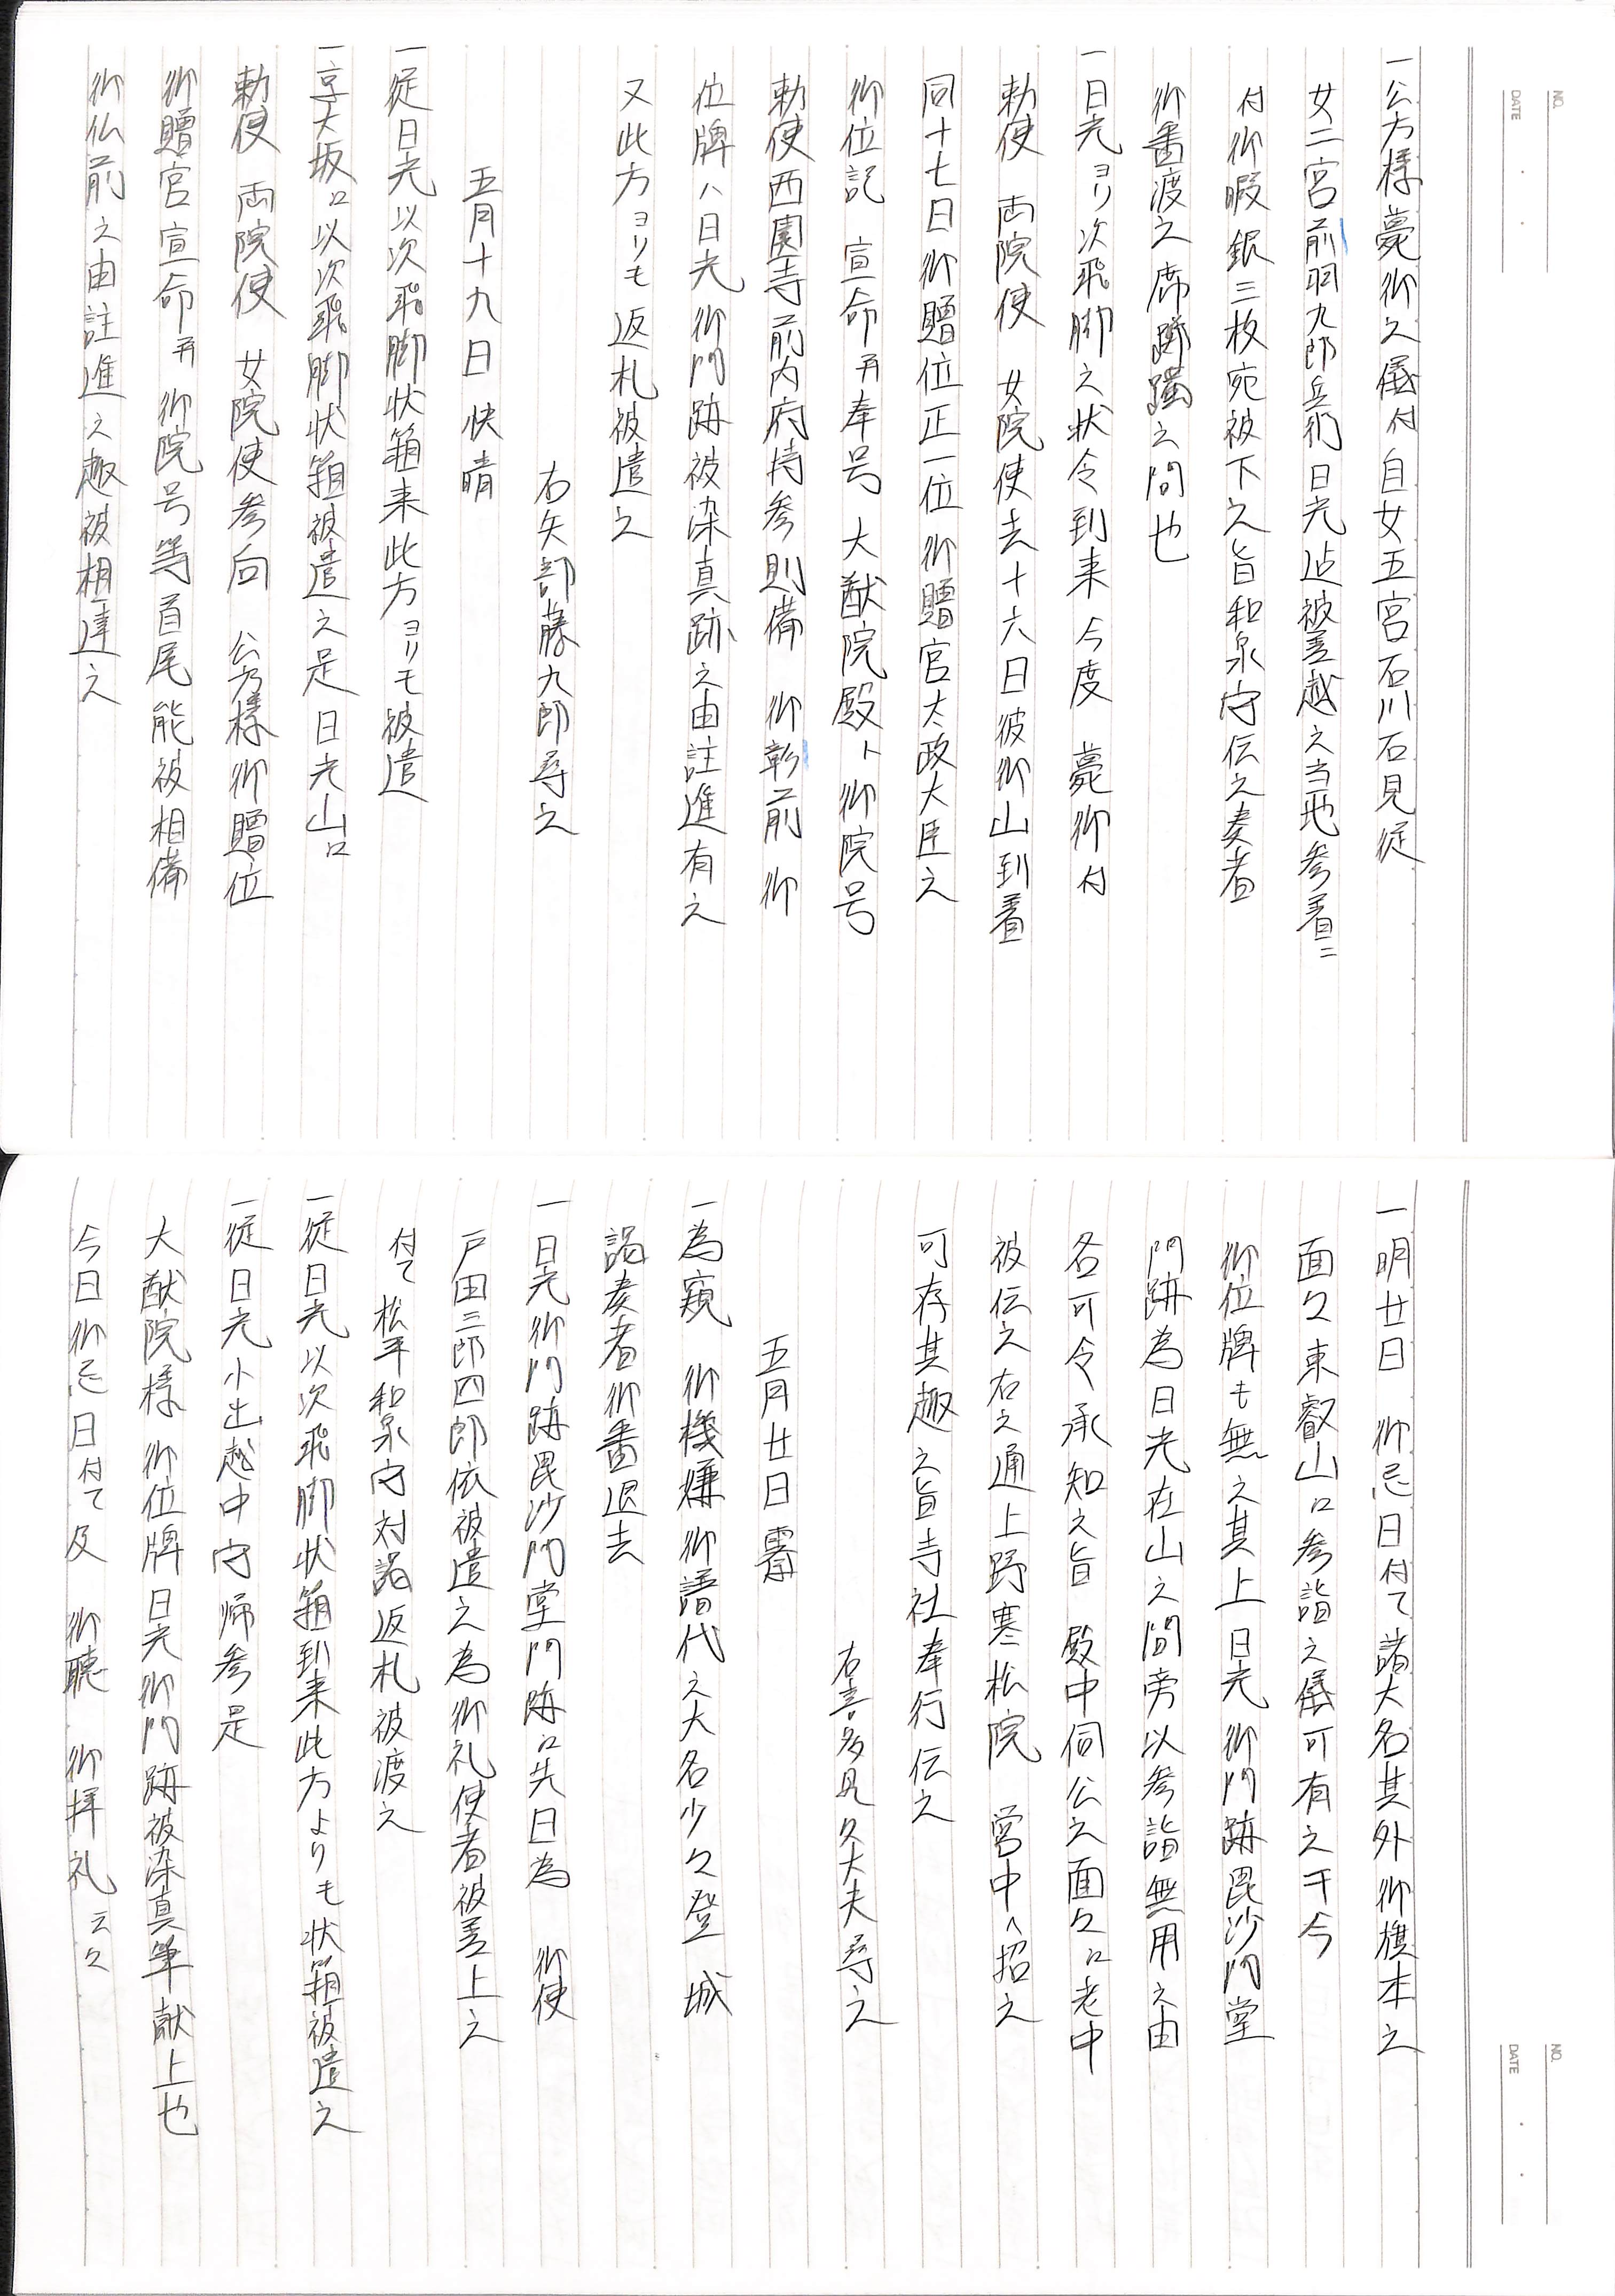 NO.
DATE
一公方様薨御之儀付自女五宮石川石見従
女二宮前羽九郎兵衛日光迠被差越之当地参着ニ
付御暇銀三枚宛被下之旨和泉守伝之奏者
御番渡之席躑躅之間也
一日光ヨリ次飛脚之状令到来今度 薨御付
勅使 両院使 女院使去十六日彼御山到着
同十七日御贈位正一位御贈官太政大臣之
御位記 宣命再奉号 大猷院殿ト御院号
勅使西園寺前内府持参則備 御影前御
位牌ハ日光御門跡被染真跡之由註進有之
又此方ヨリモ返札被遣之
右矢部藤九郎尋之
五月十九日 快晴
一従日光以次飛脚状箱来此方ヨリモ被遣
一京大坂口以次飛脚状箱被遣之是日光山口
勅使 両院使 女院使参向 公方様御贈位
御贈官宣命再御院号等首尾能被相備
御仏前之由註進之趣被相達之
NO.
DATE
一明廿日 御忌日付て諸大名其外御旗本之
面々東叡山口参詣之儀可有之于今
御位牌も無之其上日光御門跡毘沙門堂
門跡為日光在山之間旁以参詣無用之由
各可令承知之旨 殿中伺公之面々口老中
被伝之右之通上野寒松院 営中へ招之
可存其趣之旨寺社奉行伝之
右喜多見久大夫尋之
五月廿日 霽
一為窺 御機嫌御譜代之大名少々登 城
謁奏者御番退去
一日光御門跡毘沙門堂門跡口先日為 御使
戸田三郎四郎依被遣之為御礼使者被差上之
付て松平和泉守対謁返札被渡之
一従日光以次飛脚状箱到来此方よりも状箱被遣之
一従日光小出越中守帰参是
大猷院様御位牌日光御門跡被染真筆献上也
今日御忌日付て及 御聴 御拝礼云々